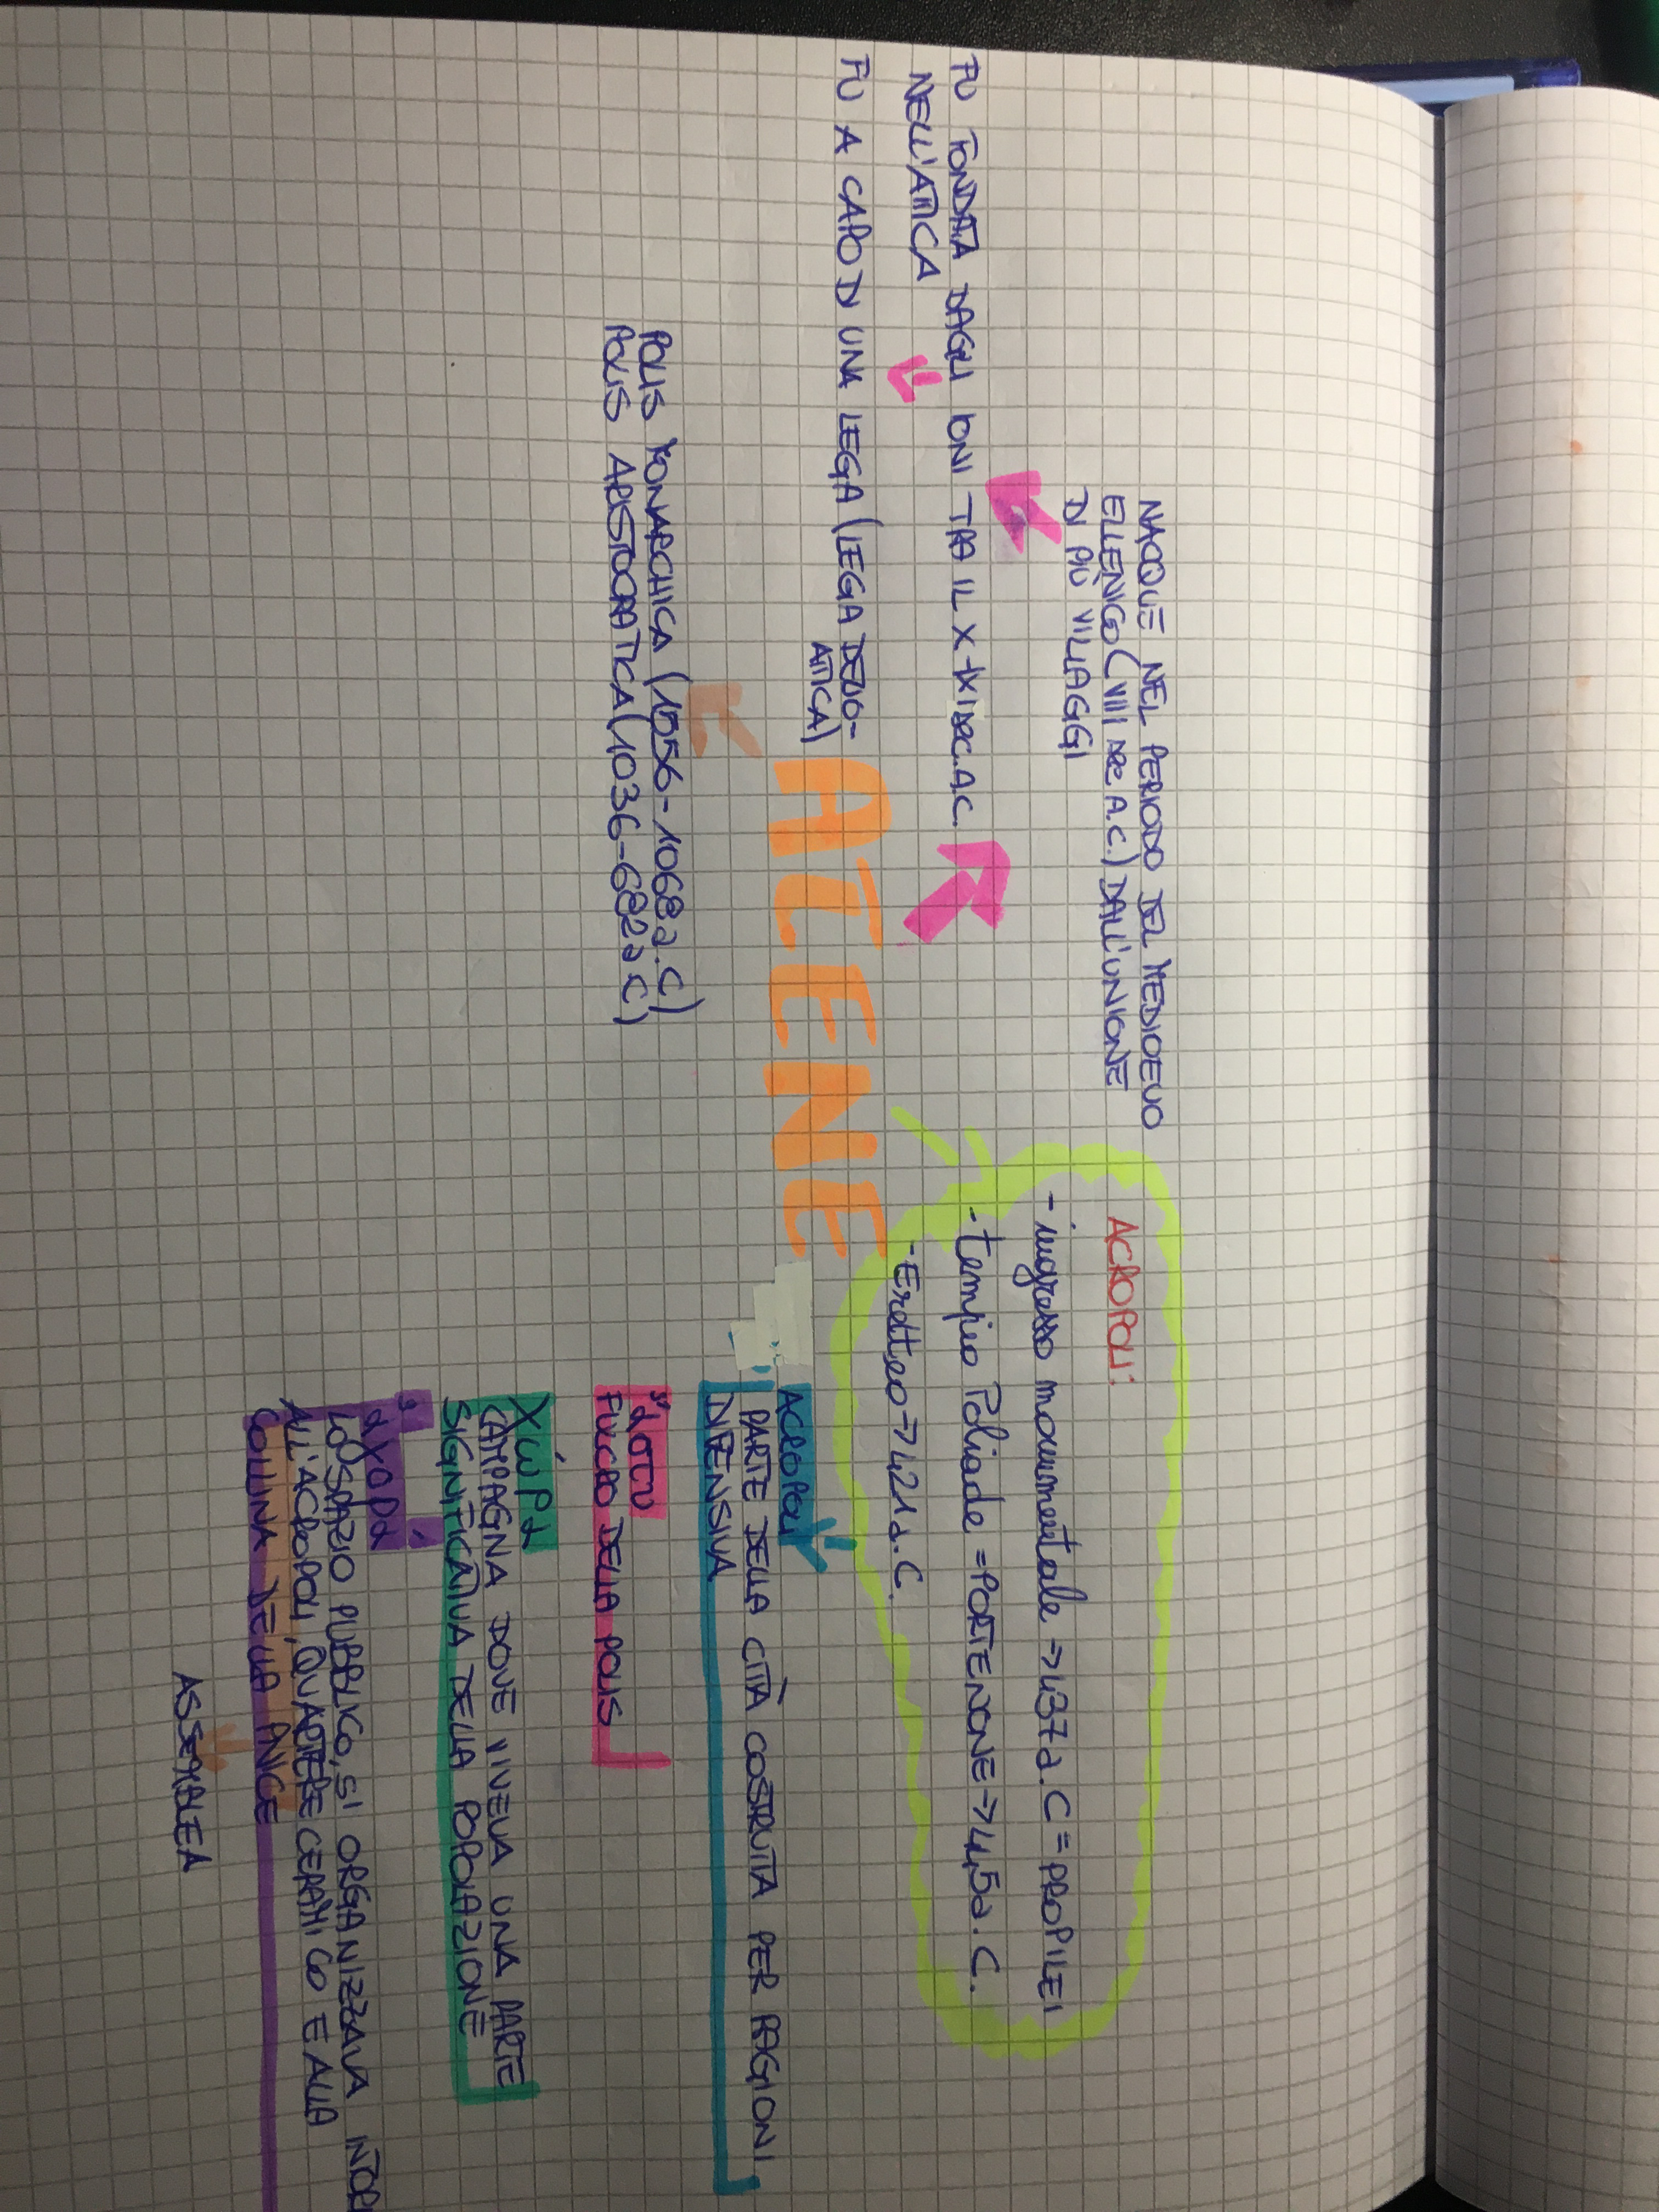 NACQUE NEL PERIODO DEL MEDIOEVO
ELLENICO (VIII SEC A.C.) DALL'UNIONE
DI PIÙ VILLAGGI
FU FONDATA DAGLI IONI TRA IL X-IX SEC. A.C.
NELL'ATTICA
FU A CAPO DI UNA LEGA (LEGA DELIO-
ATTICA)
ATENE
POLIS MONARCHICA (1556-1068 a.C)
POLIS ARISTOCRATICA (1036-682 a C)
ACROPOLI:
- ingresso monumentale → 437 a.C = PROPILEI
- tempio Poliade = PORTENONE → 445 a.C.
- Eretteo → 421 a.C.
ACROPOLI
PARTE DELLA CITTÀ COSTRUITA PER RAGIONI
DIFENSIVA
ἄστυ
FULCRO DELLA POLIS
χώρα
CAMPAGNA DOVE VIVEVA UNA PARTE
SIGNIFICATIVA DELLA POPOLAZIONE
LO SPAZIO PUBBLICO, SI ORGANIZZAVA INTOR
ALL'ACROPOLI, QUARTIERE CERAMICO E ALLA
COLLINA DELLA PNICE
ASSEMBLEA